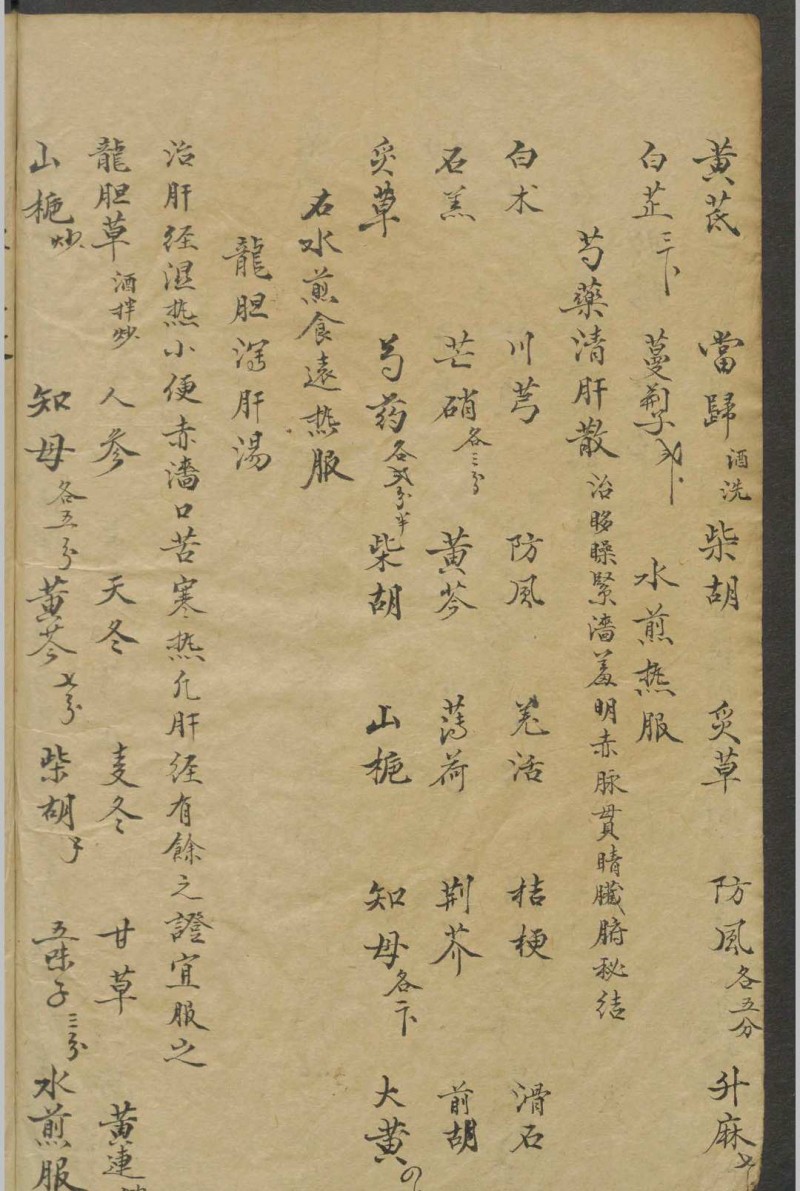 黄芪 當歸酒洗 柴胡 炙草 防風各五分 升麻
白芷 蔓荆子 水煎热服
芍藥清肝散 治眵矂緊濇羞明赤脉貫睛臟腑秘结
白术 川芎 防風 羌活 桔梗 滑石
石羔 芒硝各三分 黄芩 薄荷 荆芥 前胡
炙草 芍药各弍分半 柴胡 山栀 知母各 大黄
右水煎食遠热服
龍胆瀉肝湯
治肝经濕热小便赤濇口苦寒热凡肝经有餘之證宜服之
龍胆草酒拌炒 人参 天冬 麦冬 甘草 黄連
山栀炒 知母各五分 黄芩七分 柴胡 五味子三分 水煎服